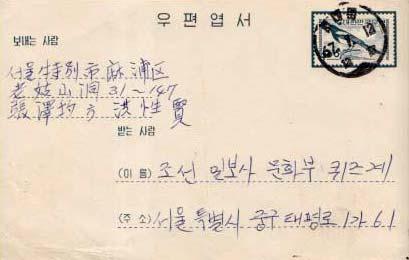 우편엽서
보내는 사람
서울特別市 麻浦区
老姑山洞 31~147
張澤 方 洪性賢
받는 사람
(이 름) 조선일보사 문화부 퀴즈계
(주 소) 서울특별시 중구 태평로 1가 61